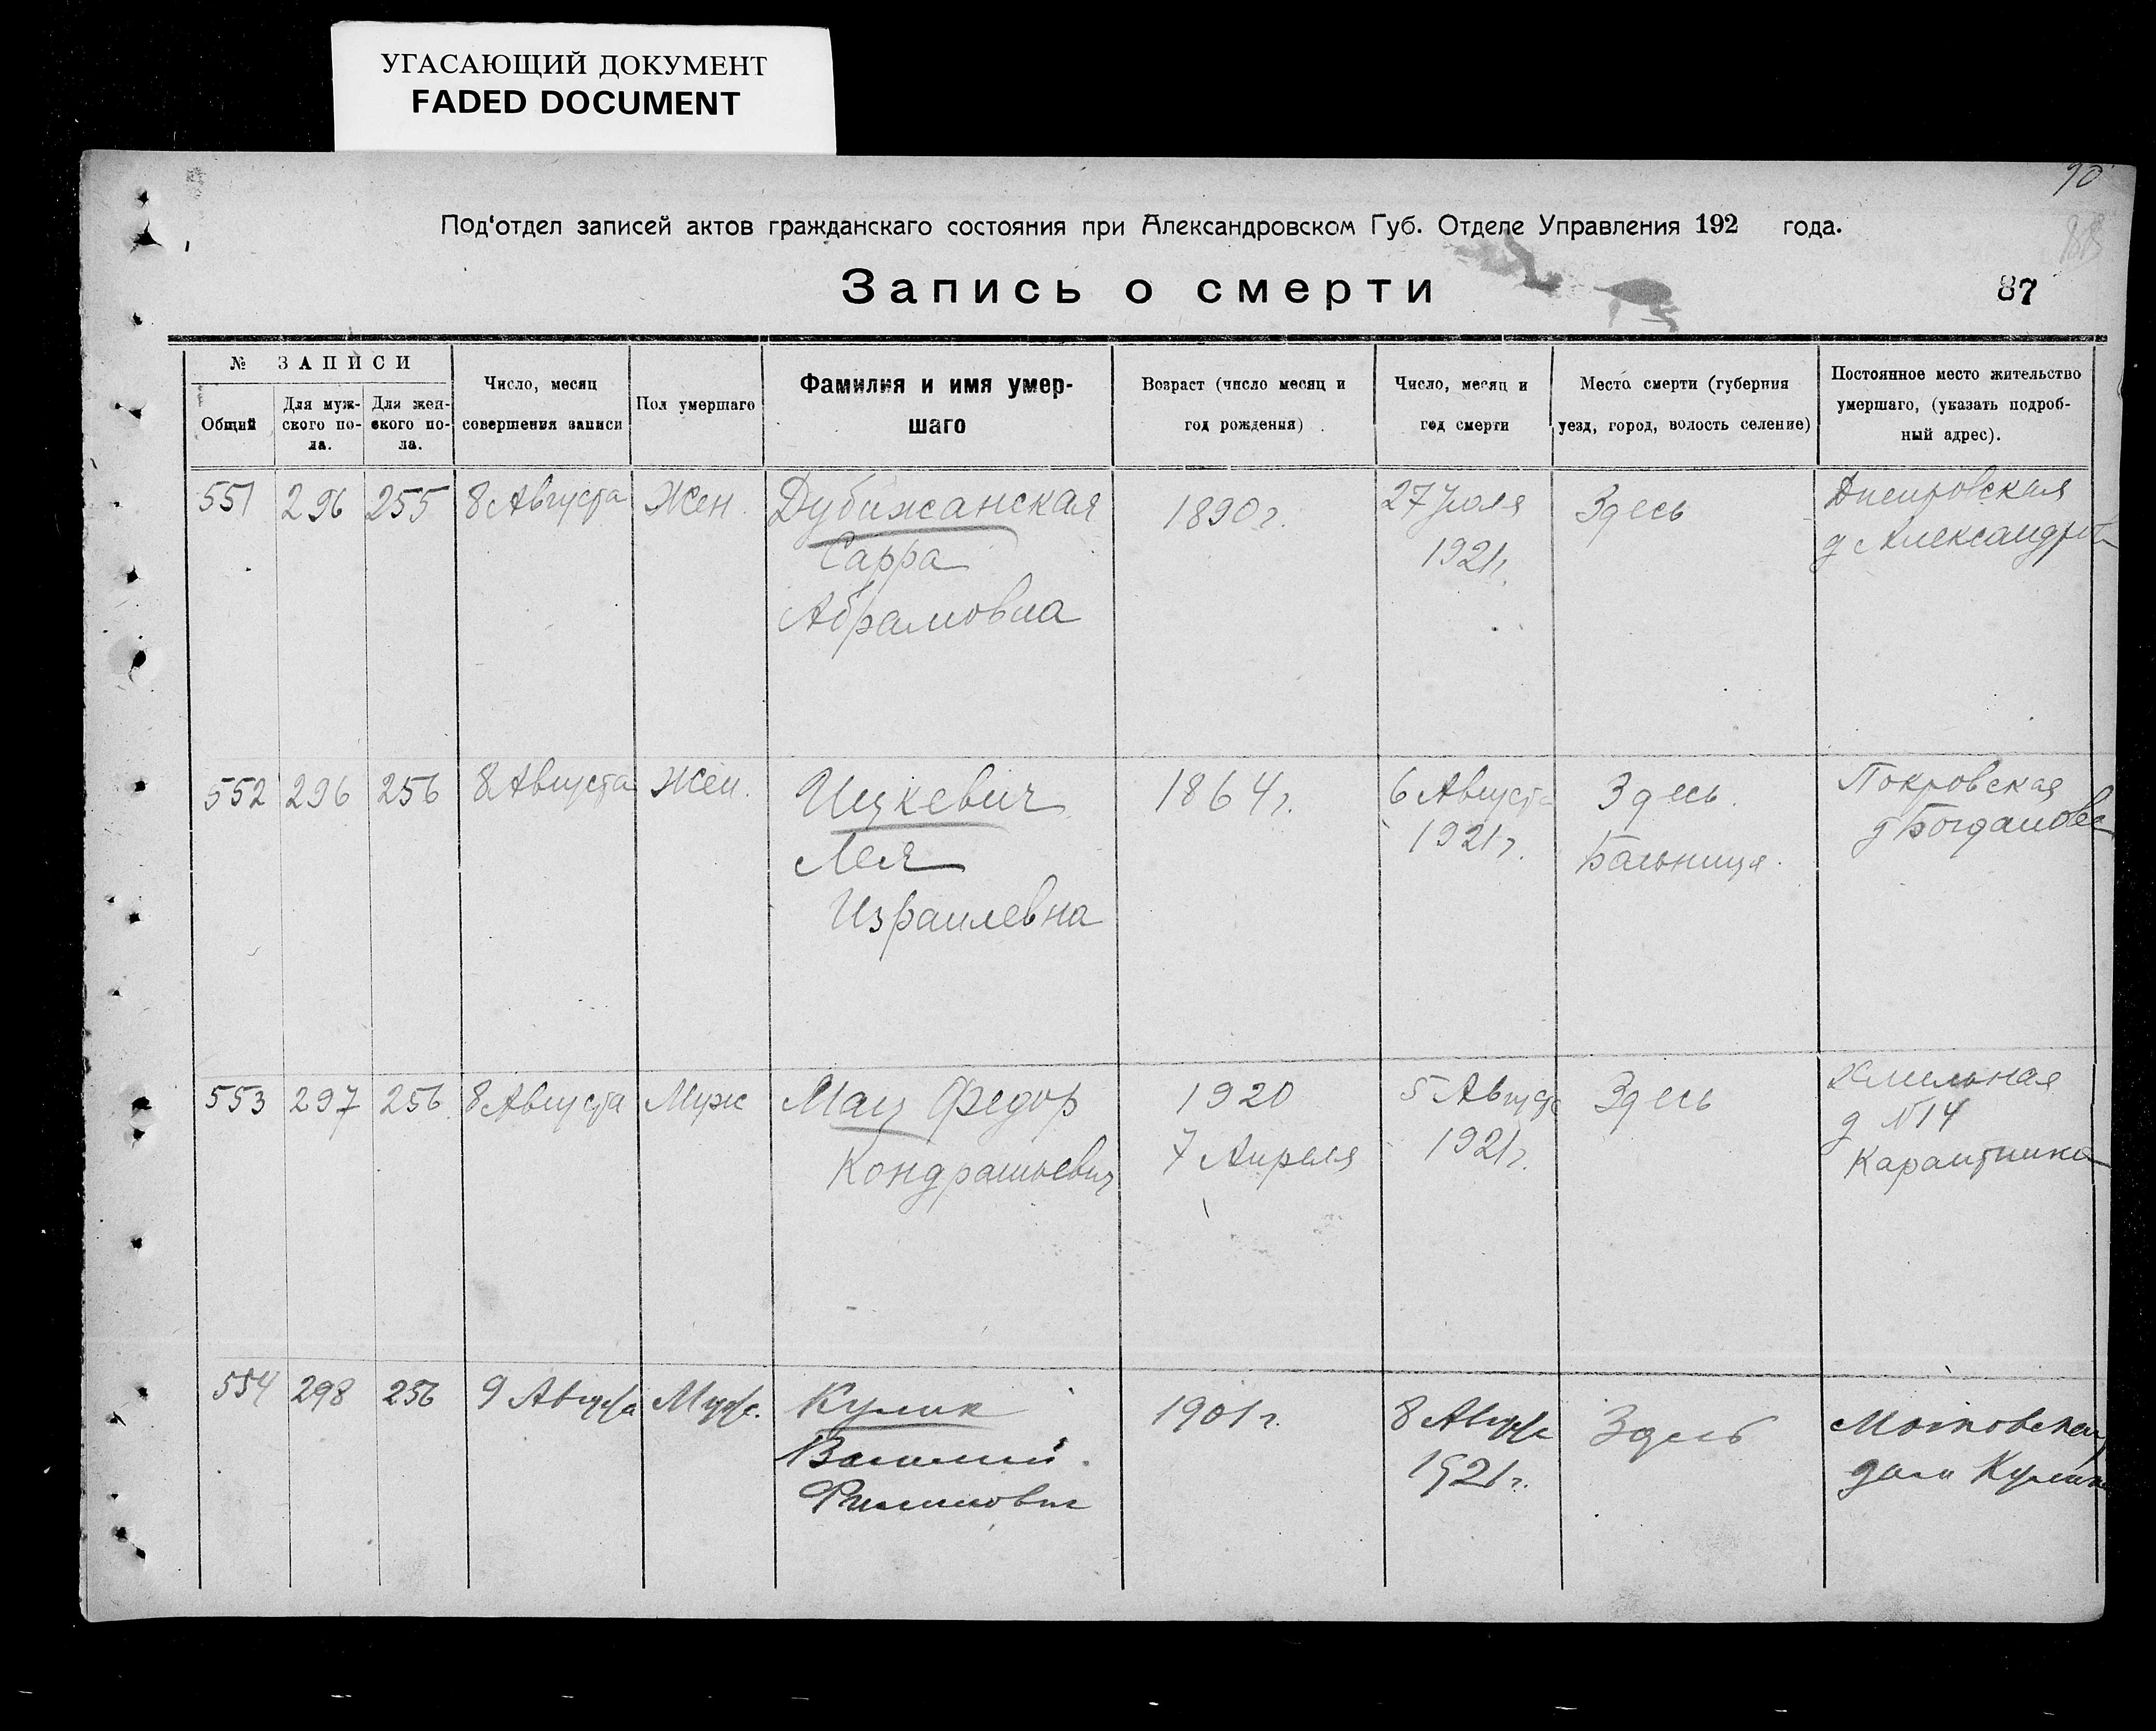 УГАСАЮЩИЙ ДОКУМЕНТ
FADED DOCUMENT
90
Под'отдел записей актов гражданскаго состояния при Александровском Губ. Отделе Управления 192 года.
88
Запись о смерти
87
№ ЗАПИСИ
Общий
Для муж-
ского по-
ла.
Для жен-
ского по-
ла.
Число, месяц
совершения записи
Пол умершаго
Фамилия и имя умер-
шаго
Возраст (число месяц и
год рождения)
Число, месяц и
год смерти
Место смерти (губерния
уезд, город, волость селение)
Постоянное место жительство
умершаго, (указать подроб-
ный адрес).
551 296 255 8 Августа Жен.
Дубижанская
Сарра
Абрамовна
1890 г.
27 Июля
1921 г.
Здесь
Днепровская
д Александров
552 296 256 8 Августа Жен.
Ицкевич
Лея
Израилевна
1864 г.
6 Августа
1921 г.
Здесь.
Больница.
Покровская
д Богданова
553 297 256 8 Августа Муж
Мац Федор
Кондратьевич
1920
7 Апреля
5 Августа
1921 г.
Здесь
д №14
554 298 256 9 Августа Муж.
Кулик
Василий
Филиппович
1901 г.
8 Августа
1921 г.
Здесь
Московская
дом Кулика